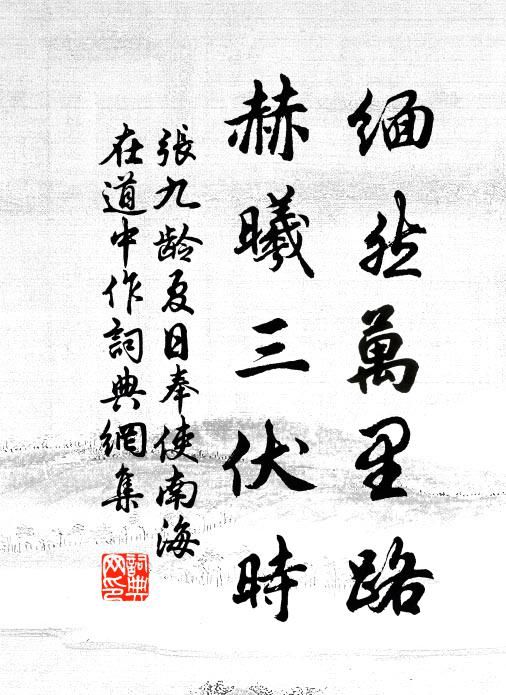 緬然萬里路
赫曦三伏時
張九齡夏日奉使南海
在道中作詞典網集
詞典
网印